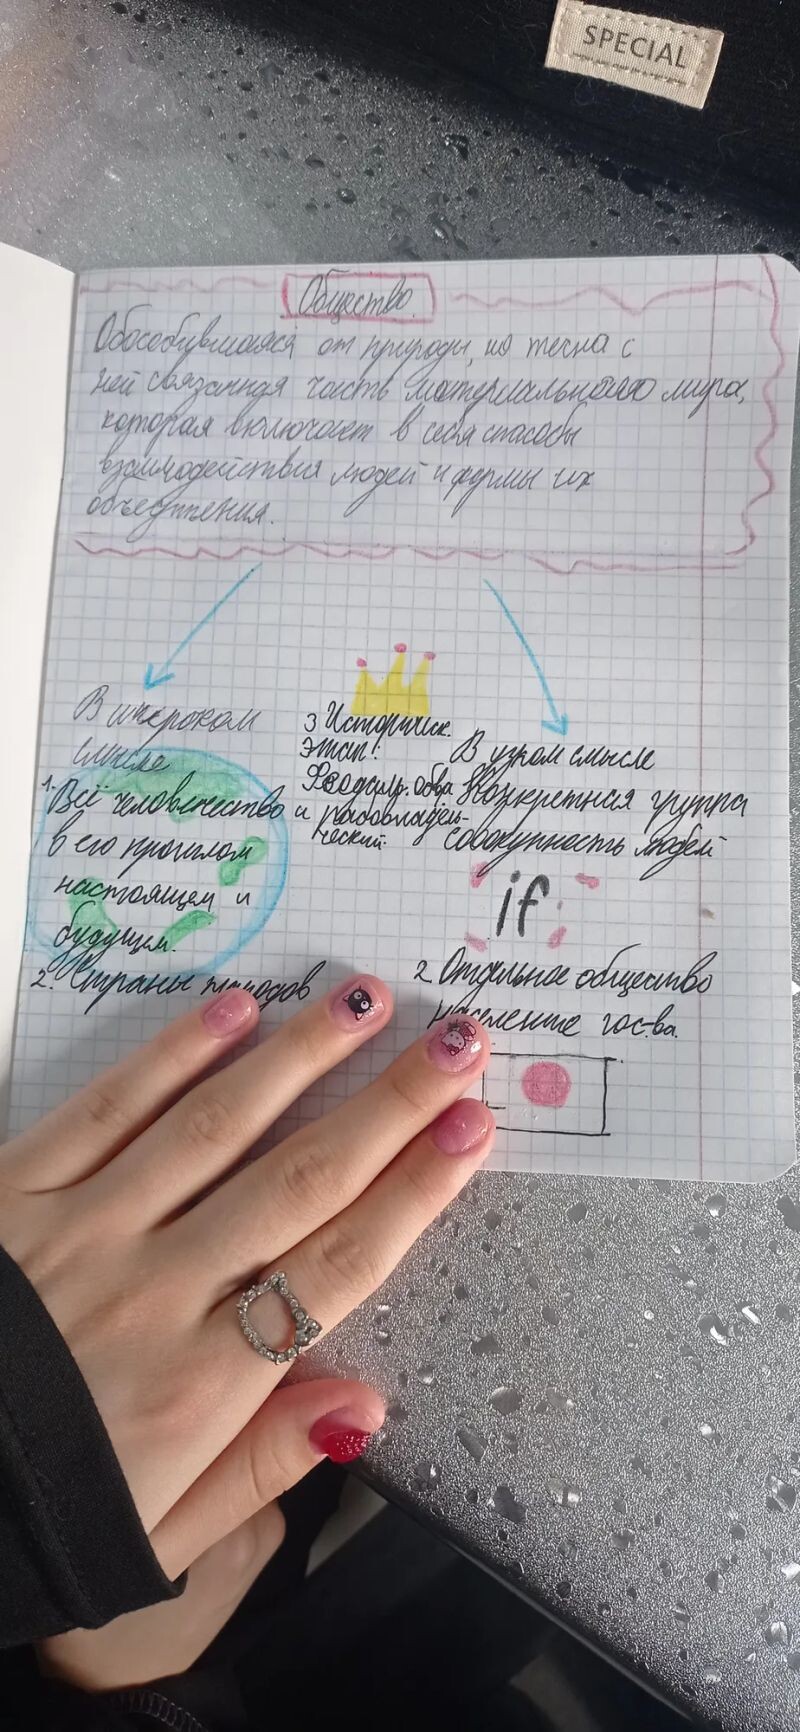 SPECIAL
Общество.
Обособившаяся от природы, но тесна с
ней связанная часть материального мира,
которая включает в себя способы
взаимодействия людей и формы их
объединения.
В широком
смысле
1. Всё человечество
в его прошлом
настоящем и
будущем.
2. Страны народов
3 Историческ.
этап!:
Феодальн. общ-ва
и рабовладель-
ческий.
В узком смысле
Конкретная группа
совокупность людей
if
2 Отдельное общество
население гос-ва.